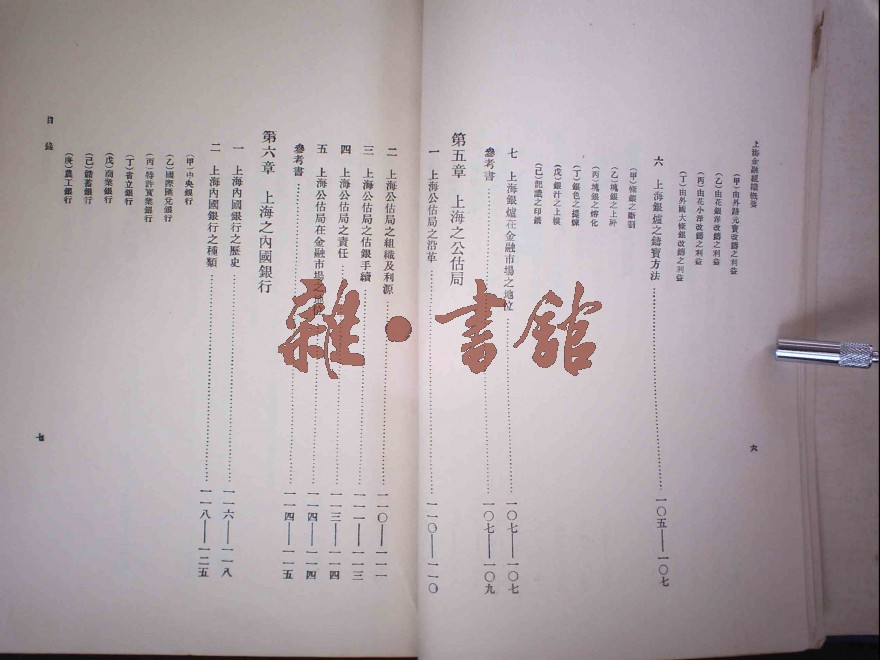 上海金融組織概要
(甲)由外路元寶改鑄之利益
(乙)由花銀洋改鑄之利益
(丙)由花小洋改鑄之利益
(丁)由外國大條銀改鑄之利益
六 上海銀爐之鑄寶方法 一〇五——一〇七
(甲)條銀之斷割
(乙)塊銀之上秤
(丙)塊銀之鎔化
(丁)銀色之提煉
(戊)銀汁之上模
(己)記識之印鐫
七 上海銀爐在金融市場之地位 一〇七——一〇七
參考書 一〇七——一〇九
第五章 上海之公估局
一 上海公估局之沿革 一一〇——一一〇
六
二 上海公估局之組織及利源 一一〇——一一一
三 上海公估局之估銀手續 一一一——一一三
四 上海公估局之責任 一一三——一一四
五 上海公估局在金融市場之地位 一一四——一一四
參考書 一一四——一一五
第六章 上海之內國銀行
一 上海內國銀行之歷史 一一六——一一八
二 上海內國銀行之種類 一一八——一二五
(甲)中央銀行
(乙)國際匯兌銀行
(丙)特許實業銀行
(丁)省立銀行
(戊)商業銀行
(己)儲蓄銀行
(庚)農工銀行
目錄
七
雜·書館